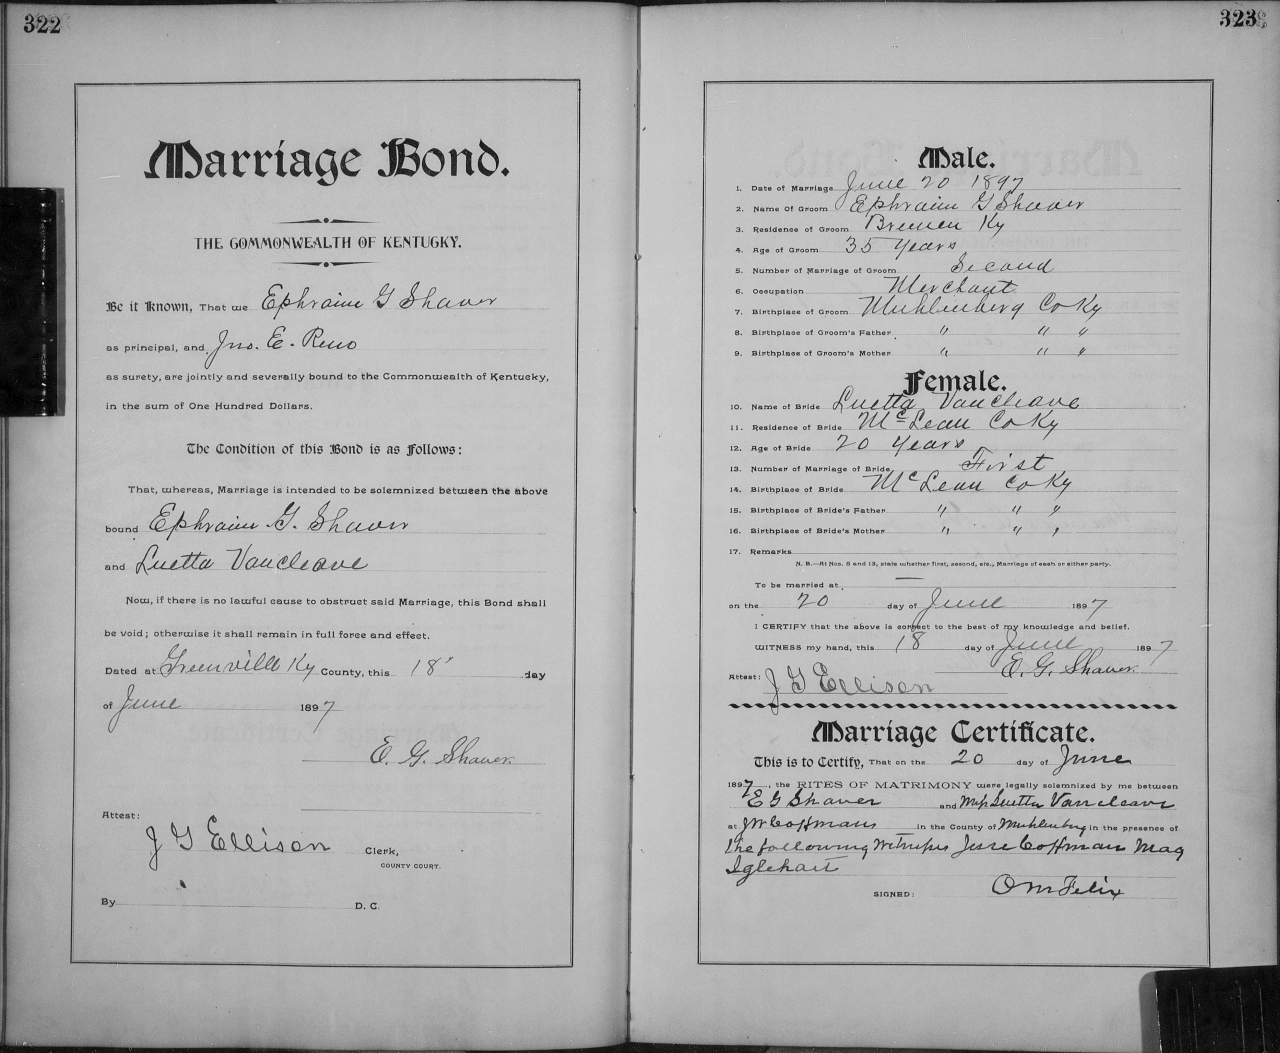 322
Marriage Bond.
THE COMMONWEALTH OF KENTUCKY.
Be it Known, That we Ephraim G Shaver
as principal, and Jno. E. Reno
as surety, are jointly and severally bound to the Commonwealth of Kentucky,
in the sum of One Hundred Dollars.
The Condition of this Bond is as Follows:
That, whereas, Marriage is intended to be solemnized between the above
bound Ephraim G. Shaver
and Luetta Vancleave
Now, if there is no lawful cause to obstruct said Marriage, this Bond shall
be void; otherwise it shall remain in full force and effect.
Dated at Greenville Ky County, this 18" day
of June 1897
E. G. Shaver
Attest:
J G Ellison Clerk,
COUNTY COURT.
By D. C.
323
Male.
1. Date of Marriage June 20 1897
2. Name Of Groom Ephraim G Shaver
3. Residence of Groom Bremen Ky
4. Age of Groom 35 Years
5. Number of Marriage of Groom Second
6. Occupation Merchant
7. Birthplace of Groom Muhlenberg Co Ky
8. Birthplace of Groom's Father " " "
9. Birthplace of Groom's Mother " " "
Female.
10. Name of Bride Luetta Vancleave
11. Residence of Bride McLean Co Ky
12. Age of Bride 20 Years
13. Number of Marriage of Bride First
14. Birthplace of Bride McLean Co Ky
15. Birthplace of Bride's Father " " "
16. Birthplace of Bride's Mother " " "
17. Remarks
N. B.—At Nos. 5 and 13, state whether first, second, etc., Marriage of each or either party.
To be married at —
on the 20 day of June 1897
I CERTIFY that the above is correct to the best of my knowledge and belief.
WITNESS my hand, this 18 day of June 1897
E. G. Shaver
Attest: J G Ellison
Marriage Certificate.
This is to Certify, That on the 20 day of June
1897, the RITES OF MATRIMONY were legally solemnized by me between
E G Shaver and Miss Luetta Vancleave
at J W Coffmans in the County of Muhlenburg in the presence of
the following Witnesses Jesse Coffman Mag
Iglehart
SIGNED: O M Felix